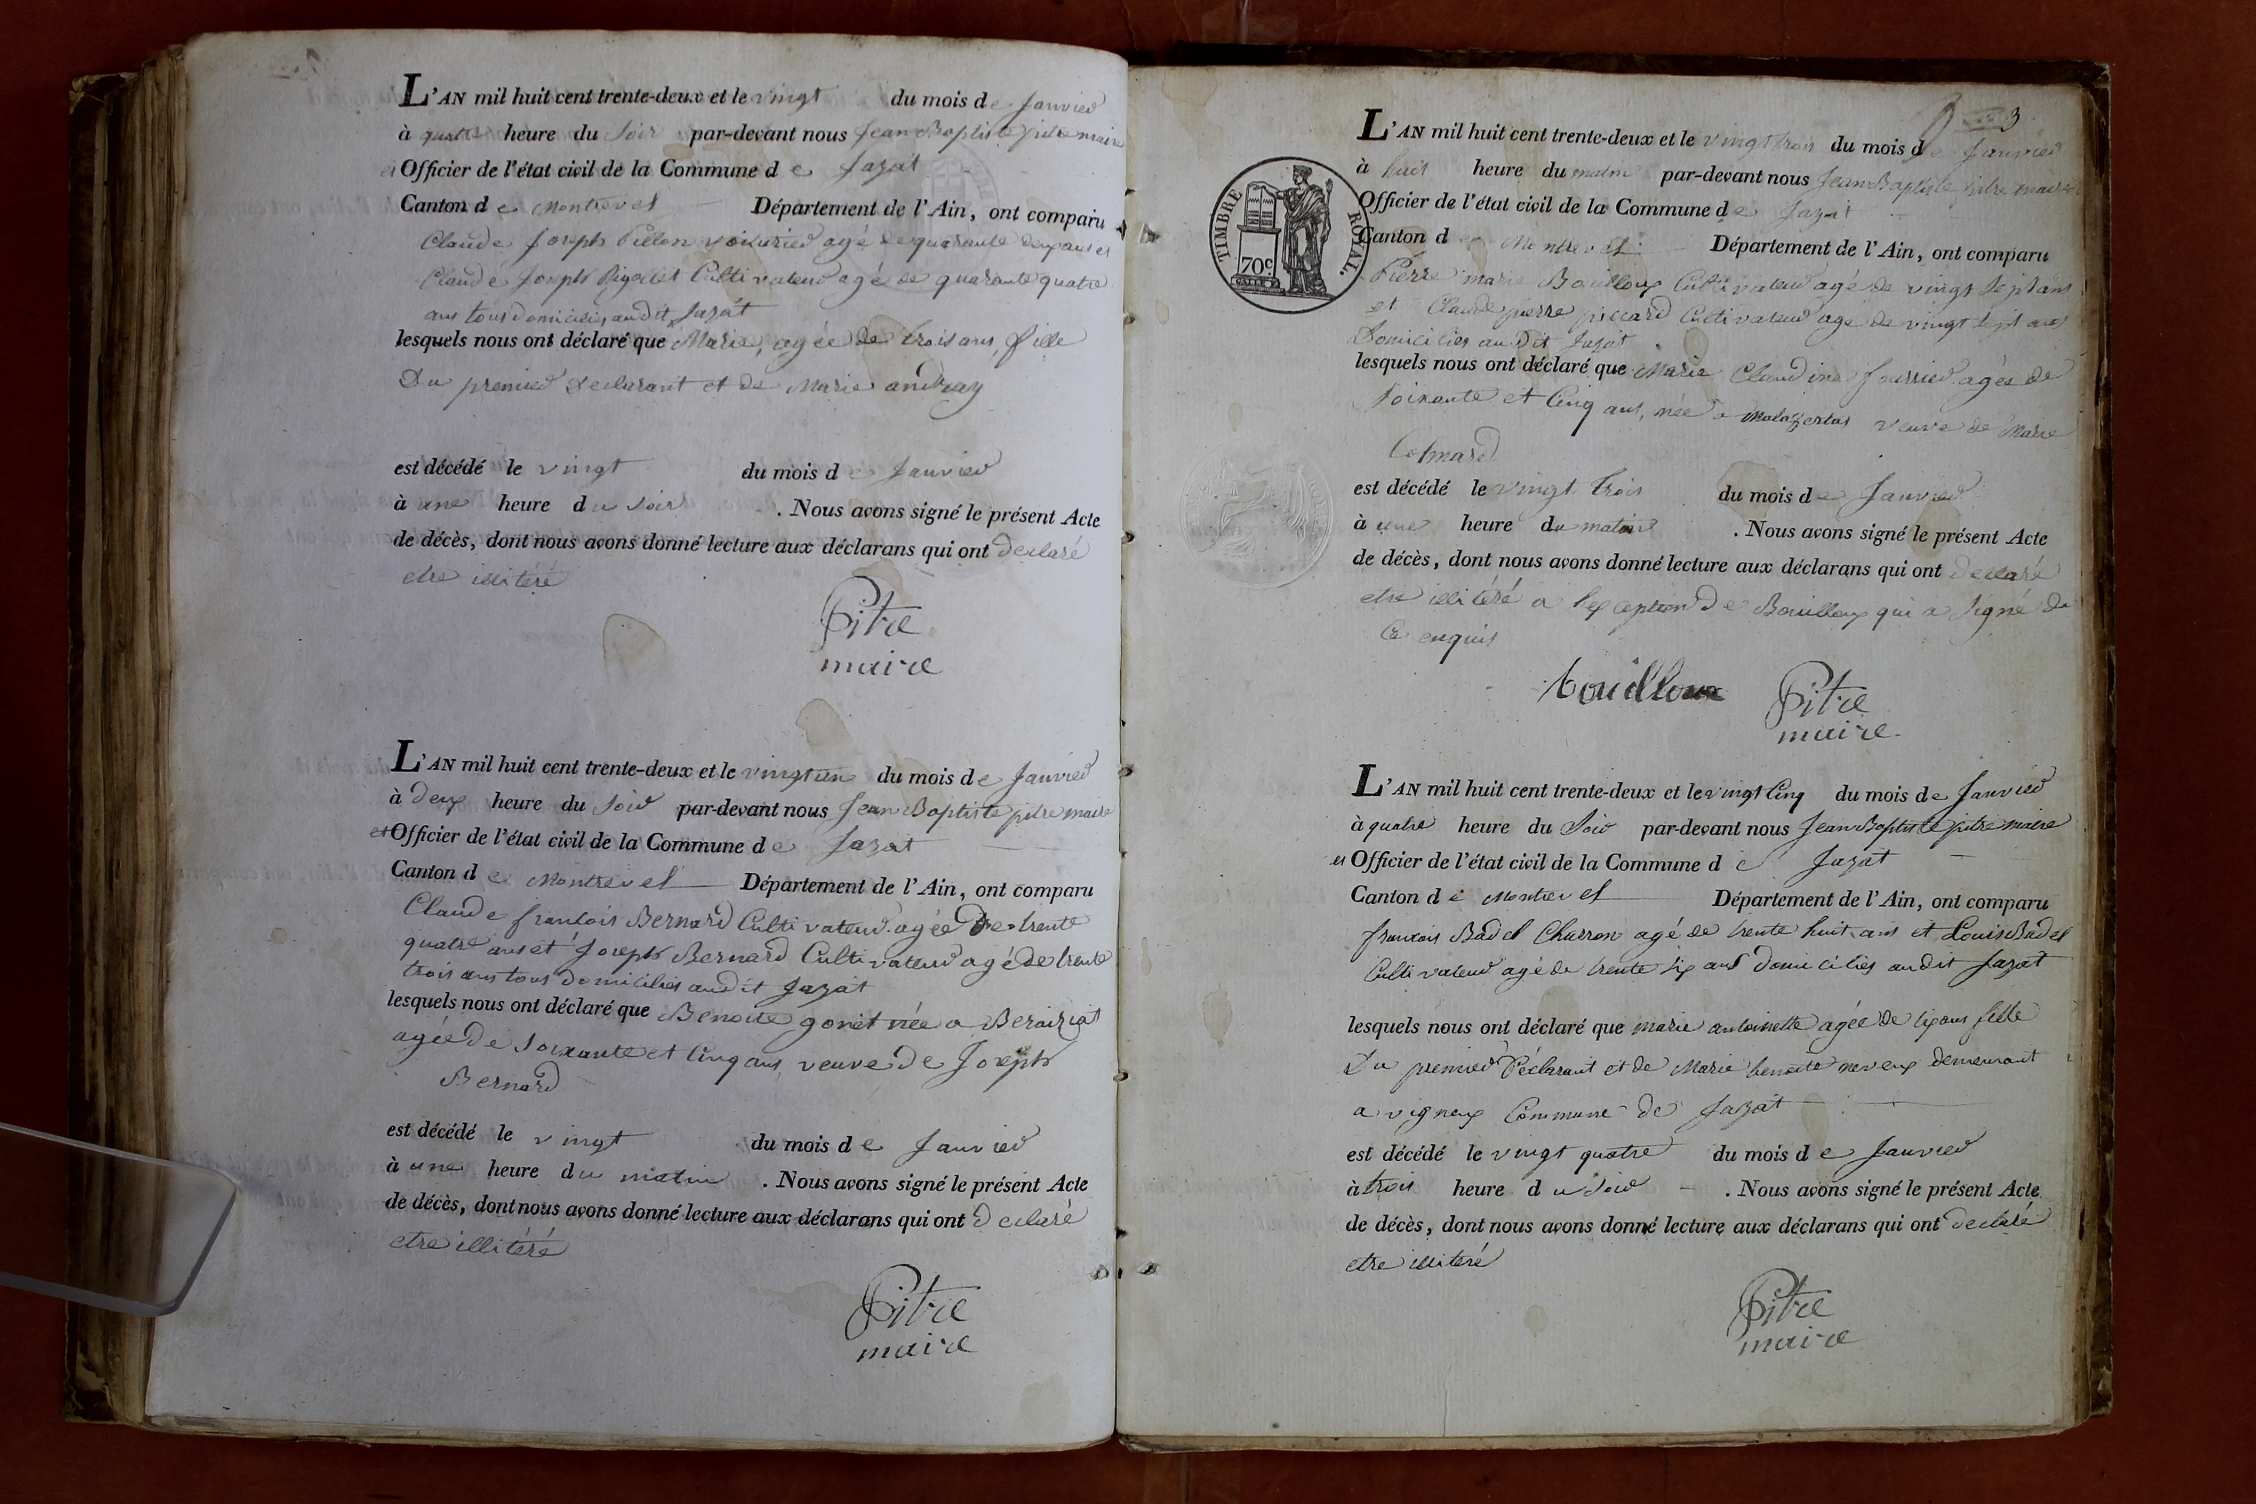 L'AN mil huit cent trente-deux et le vingt du mois de Janvier
à quatre heure du Soir par-devant nous Jean Baptiste pitre maire
et Officier de l'état civil de la Commune de Jayat
Canton de Montrevel Département de l'Ain, ont comparu
Claude Joseph Pillon voiturier agé de quarante deux ans et
Claude Joseph Rigollet Cultivateur agé de quarante quatre
ans tous domiciliés audit Jayat
lesquels nous ont déclaré que Marie, agée de trois ans, fille
Du premier declarant et de Marie andréay
est décédé le vingt du mois de Janvier
à une heure du Soir . Nous avons signé le présent Acte
de décès, dont nous avons donné lecture aux déclarans qui ont declaré
etre illitéré
Pitre
maire
L'AN mil huit cent trente-deux et le vingt un du mois de Janvier
à deux heure du Soir par-devant nous Jean Baptiste pitre maire
et Officier de l'état civil de la Commune de Jayat
Canton de Montrevel Département de l'Ain, ont comparu
Claude francois Bernard Cultivateur agée de trente
quatre ans et Joseph Bernard Cultivateur agé de trente
trois ans tous domiciliés audit Jayat
lesquels nous ont déclaré que Benoite gonet née a Beraiziat
agée de Soixante et Cinq ans, veuve de Joseph
Bernard
est décédé le vingt du mois de Janvier
à une heure du matin . Nous avons signé le présent Acte
de décès, dont nous avons donné lecture aux déclarans qui ont declaré
etre illitéré
Pitre
maire
3
TIMBRE ROYAL.
70c
L'AN mil huit cent trente-deux et le vingt trois du mois de Janvier
à huit heure du matin par-devant nous Jean Baptiste pitre maire
Officier de l'état civil de la Commune de Jayat
Canton de Montrevel Département de l'Ain, ont comparu
Pierre marie Bouilloux Cultivateur agé de vingt Sept ans
et Claude pierre piccard Cultivateur agé de vingt Sept ans
Domiciliés audit Jayat
lesquels nous ont déclaré que Marie Claudine agée de
Soixante et Cinq ans, née a veuve de Marie
Colmard
est décédé le vingt trois du mois de Janvier
à une heure du matin . Nous avons signé le présent Acte
de décès, dont nous avons donné lecture aux déclarans qui ont declaré
etre illitéré a l'exception de Bouilloux qui a Signé de
Ce enquis
bouilloux Pitre
maire
L'AN mil huit cent trente-deux et le vingt Cinq du mois de Janvier
à quatre heure du Soir par-devant nous Jean Baptiste pitre maire
et Officier de l'état civil de la Commune de Jayat
Canton de Montrevel Département de l'Ain, ont comparu
francois Badel Charron agé de trente huit ans et Louis Badel
Cultivateur agé de trente Six ans domiciliés audit Jayat
lesquels nous ont déclaré que marie antoinette agée de Six ans fille
Du premier Déclarant et de Marie benoite neveux demeurant
a vigneux Commune de Jayat
est décédé le vingt quatre du mois de Janvier
à trois heure du Soir . Nous avons signé le présent Acte
de décès, dont nous avons donné lecture aux déclarans qui ont declaré
etre illiteré
Pitre
maire